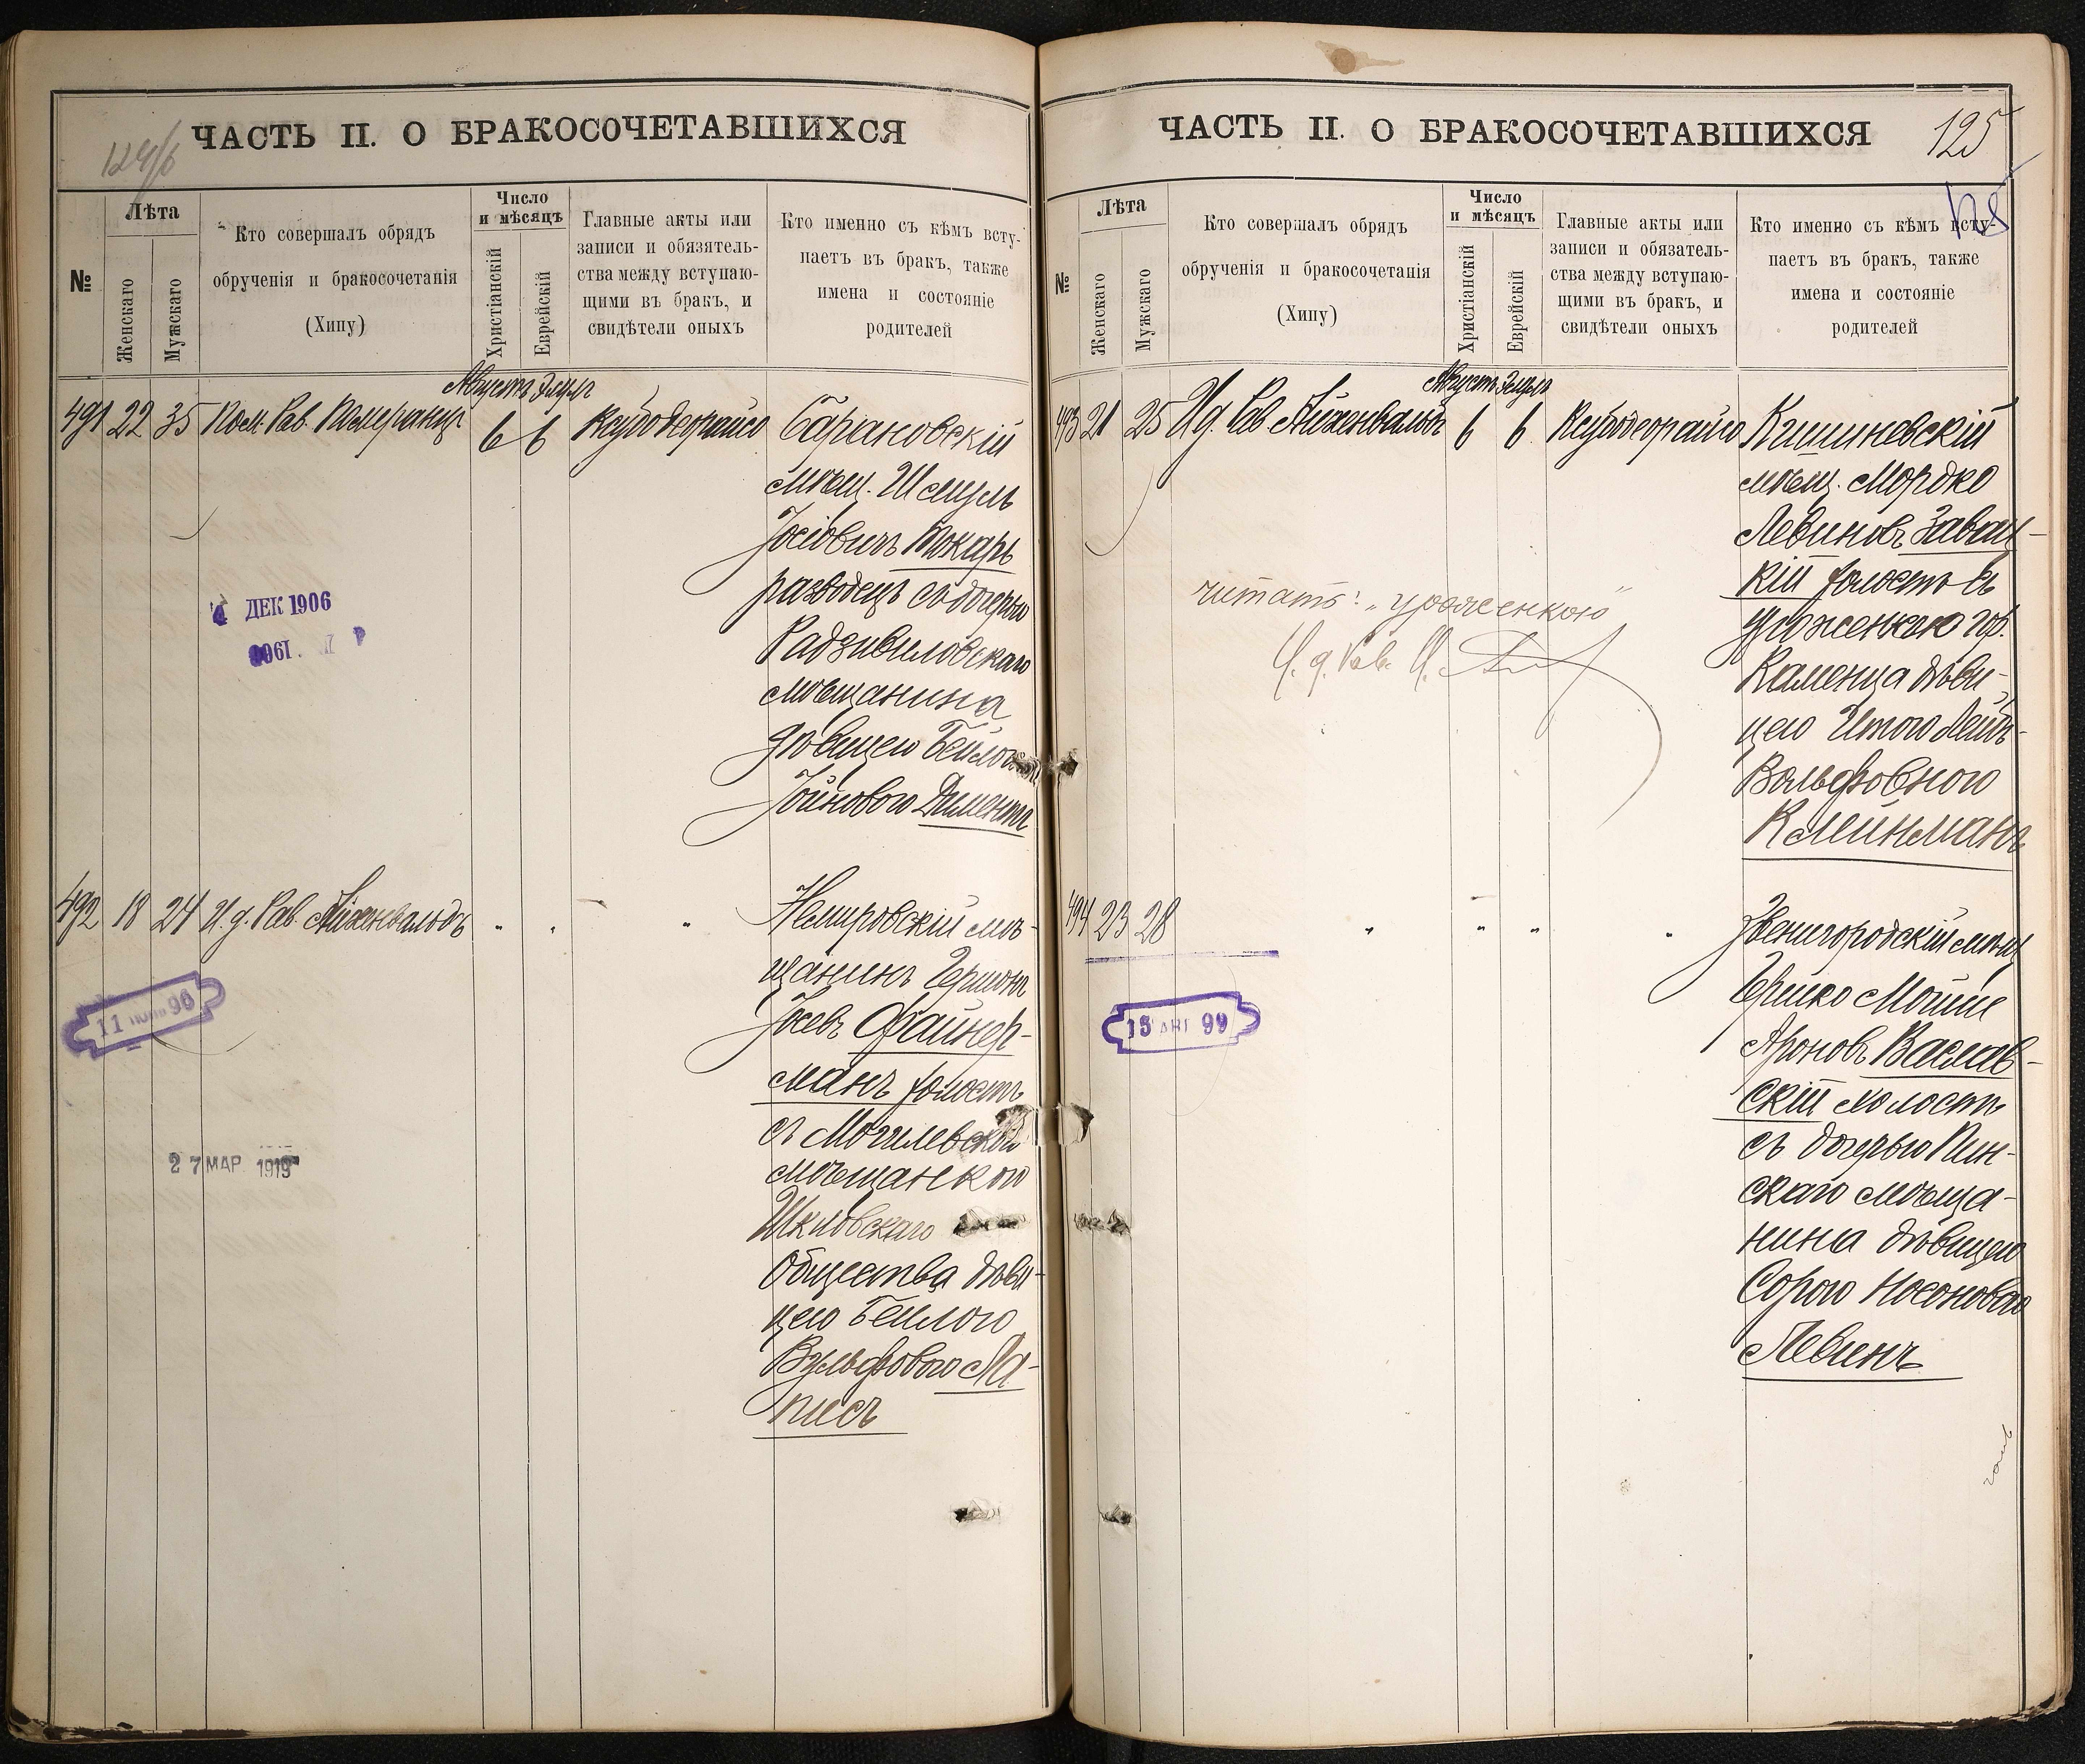 124/б
ЧАСТЬ II. О БРАКОСОЧЕТАВШИХСЯ
№
Лѣта
Женскаго
Мужскаго
Кто совершалъ обрядъ
обрученія и бракосочетанія
(Хипу)
Число
и мѣсяцъ
Христіанскій
Еврейскій
Главные акты или
записи и обязатель-
ства между вступаю-
щими въ бракъ, и
свидѣтели оныхъ
Кто именно съ кѣмъ всту-
паетъ въ бракъ, также
имена и состояніе
родителей
Августъ Элулъ
491 22 35 Пом. Рав. Померанцъ 6 6 Ксубодеорайсо
Барановскій
мѣщ. Шмуль
Іосіовичъ Токарь
разводецъ съ дочерью
Радзивиловскаго
мѣщанина
дѣвицею Бейлою
Іойновою Диментъ
4 ДЕК 1906
492 18 24 И. д. Рав. Айхенвальдъ " " "
Немировскій мѣ-
щанинъ Гершонъ
Іосевъ Файнер-
манъ холостъ
съ Могилевской
мѣщанкою
Шкловскаго
Общества дѣви-
цею Бейлою
Вульфовою Ла-
писъ
11 96
2 7 МАР 1919
125
ЧАСТЬ II. О БРАКОСОЧЕТАВШИХСЯ
№
Лѣта
Женскаго
Мужскаго
Кто совершалъ обрядъ
обрученія и бракосочетанія
(Хипу)
Число
и мѣсяцъ
Христіанскій
Еврейскій
Главные акты или
записи и обязатель-
ства между вступаю-
щими въ бракъ, и
свидѣтели оныхъ
Кто именно съ кѣмъ всту-
паетъ въ бракъ, также
имена и состояніе
родителей
Августъ Элулъ
493 21 25 И д. Рав. Айхенвальдъ 6 6 Ксубодеорайсо
Кишиневскій
мѣщ. Мордко
Левиновъ Завац-
кій холостъ съ
уроженкою гор.
Каменца дѣви-
цею Итою Лейъ
Вольфовною
Клейнманъ
читать: „уроженкою"
И. д. Рав. И.
494 23 28 " " " "
Звенигородскій мѣщ
Гершко Мойше
Ароновъ Васлав-
скій холостъ
съ дочерью Пин-
скаго мѣща-
нина дѣвицею
Сорою Носоновою
Левинъ
15 АВГ 99